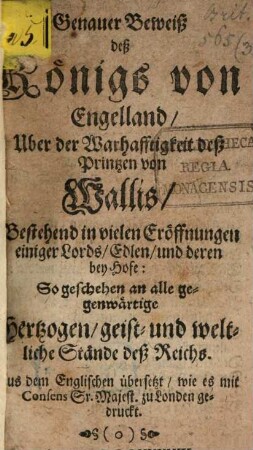 Brit.
565/3
Genauer Beweiß
deß
Königs von
Engelland/
Uber der Warhafftigkeit deß
Printzen von
Wallis/
REGIA
MONACENSIS
Bestehend in vielen Eröffnungen
einiger Lords/Edlen/und deren
bey-Hofe:
So geschehen an alle ge-
genwärtige
Hertzogen/geist- und welt-
liche Stände deß Reichs.
us dem Englischen übersetzt/ wie es mit
Consens Sr. Majest. zu Londen ge-
druckt.
(o)